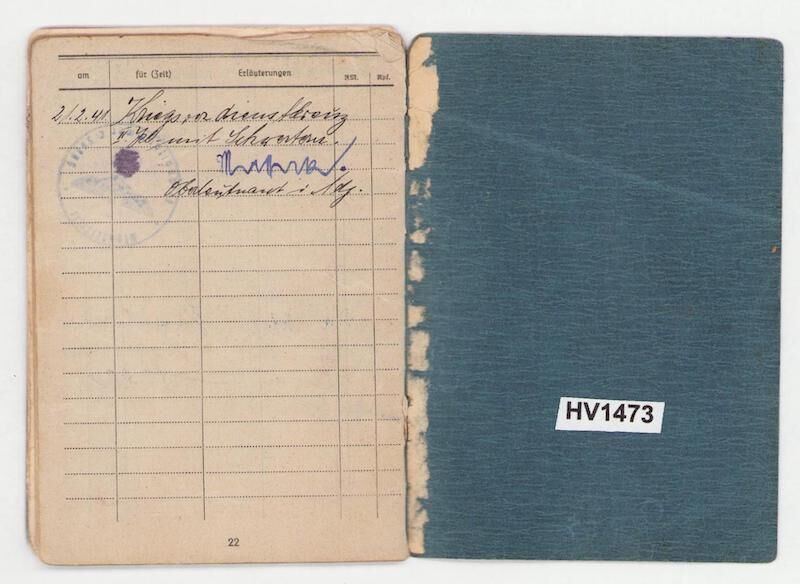 am für (Zeit) Erläuterungen RM. Rpf.
21.2.41 Kriegsverdienstkreuz
II Kl. mit Schwertern.
Oberleutnant u. Adj.
22
HV1473